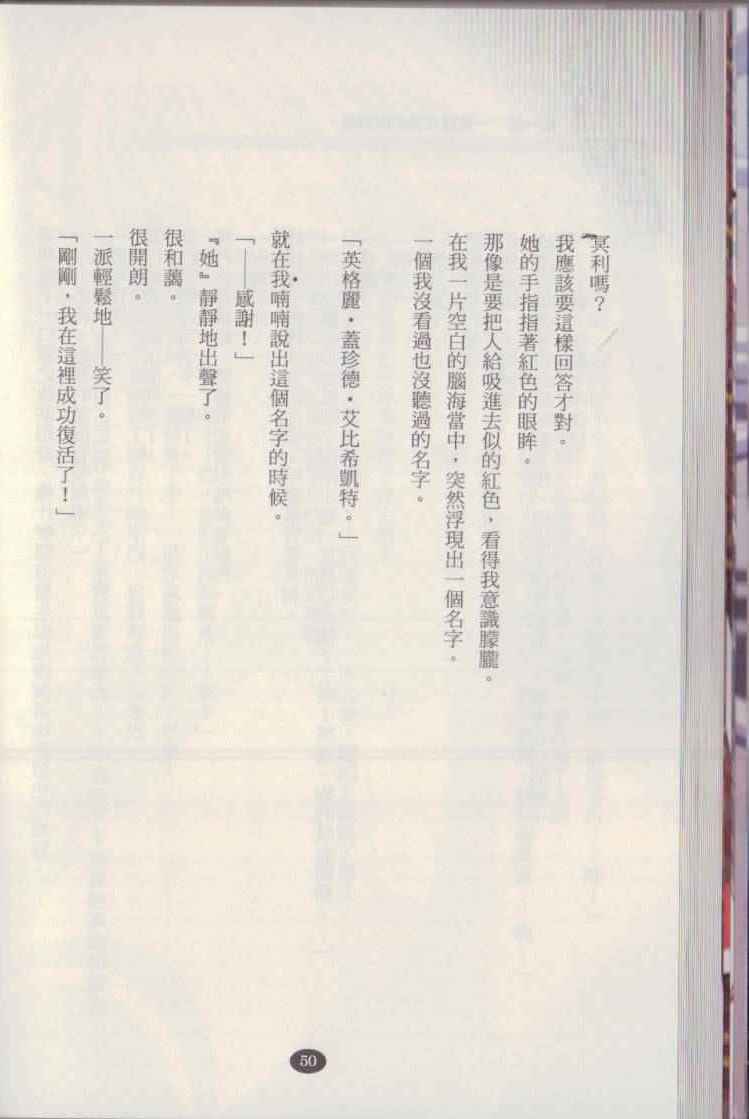 冥利嗎？
我應該要這樣回答才對。
她的手指指著紅色的眼眸。
那像是要把人給吸進去似的紅色，看得我意識朦朧。
在我一片空白的腦海當中，突然浮現出一個名字。
一個我沒看過也沒聽過的名字。
「英格麗・蓋珍德・艾比希凱特。」
就在我喃喃說出這個名字的時候。
「——感謝！」
『她』靜靜地出聲了。
很和藹。
很開朗。
一派輕鬆地——笑了。
「剛剛，我在這裡成功復活了！」
50